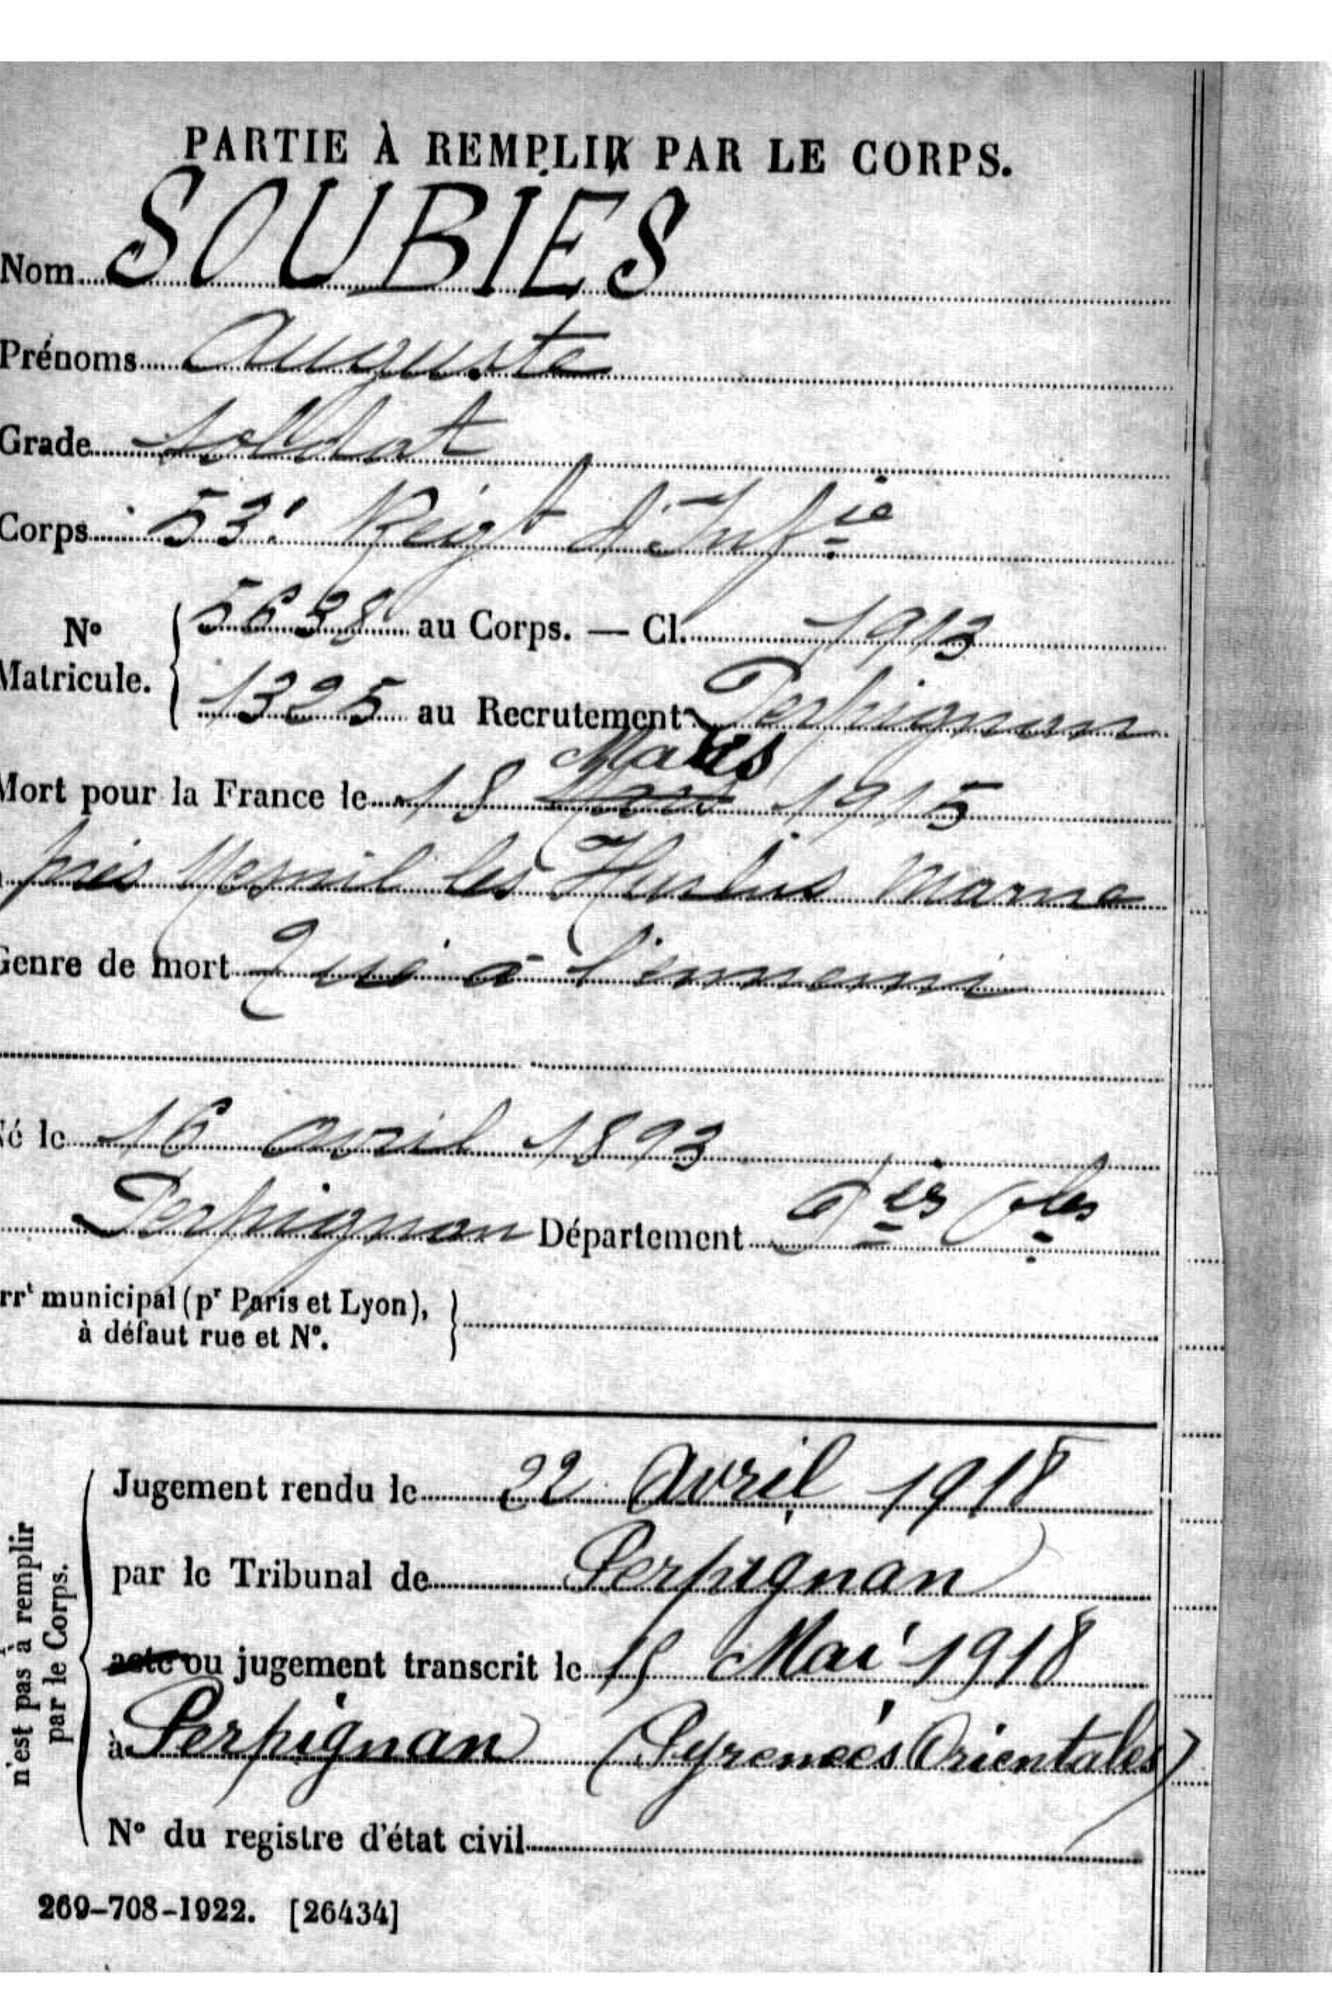 PARTIE À REMPLIR PAR LE CORPS.
Nom SOUBIES
Prénoms Auguste
Grade soldat
Corps 53e Régt d'Infie
N° Matricule. 5638 au Corps. — Cl. 1913
1325 au Recrutement Perpignan
Mars
Mort pour la France le 18 Mars 1915
près Mesnil les Hurlus Marne
Genre de mort Tué à l'ennemi
Né le 16 avril 1893
Perpignan Département Pées Oles
arrt municipal (pr Paris et Lyon),
à défaut rue et N°.
n'est pas à remplir
par le Corps.
Jugement rendu le 22 Avril 1918
par le Tribunal de Perpignan
acte ou jugement transcrit le 15 Mai 1918
à Perpignan (Pyrenées Orientales)
N° du registre d'état civil
269-708-1922. [26434]